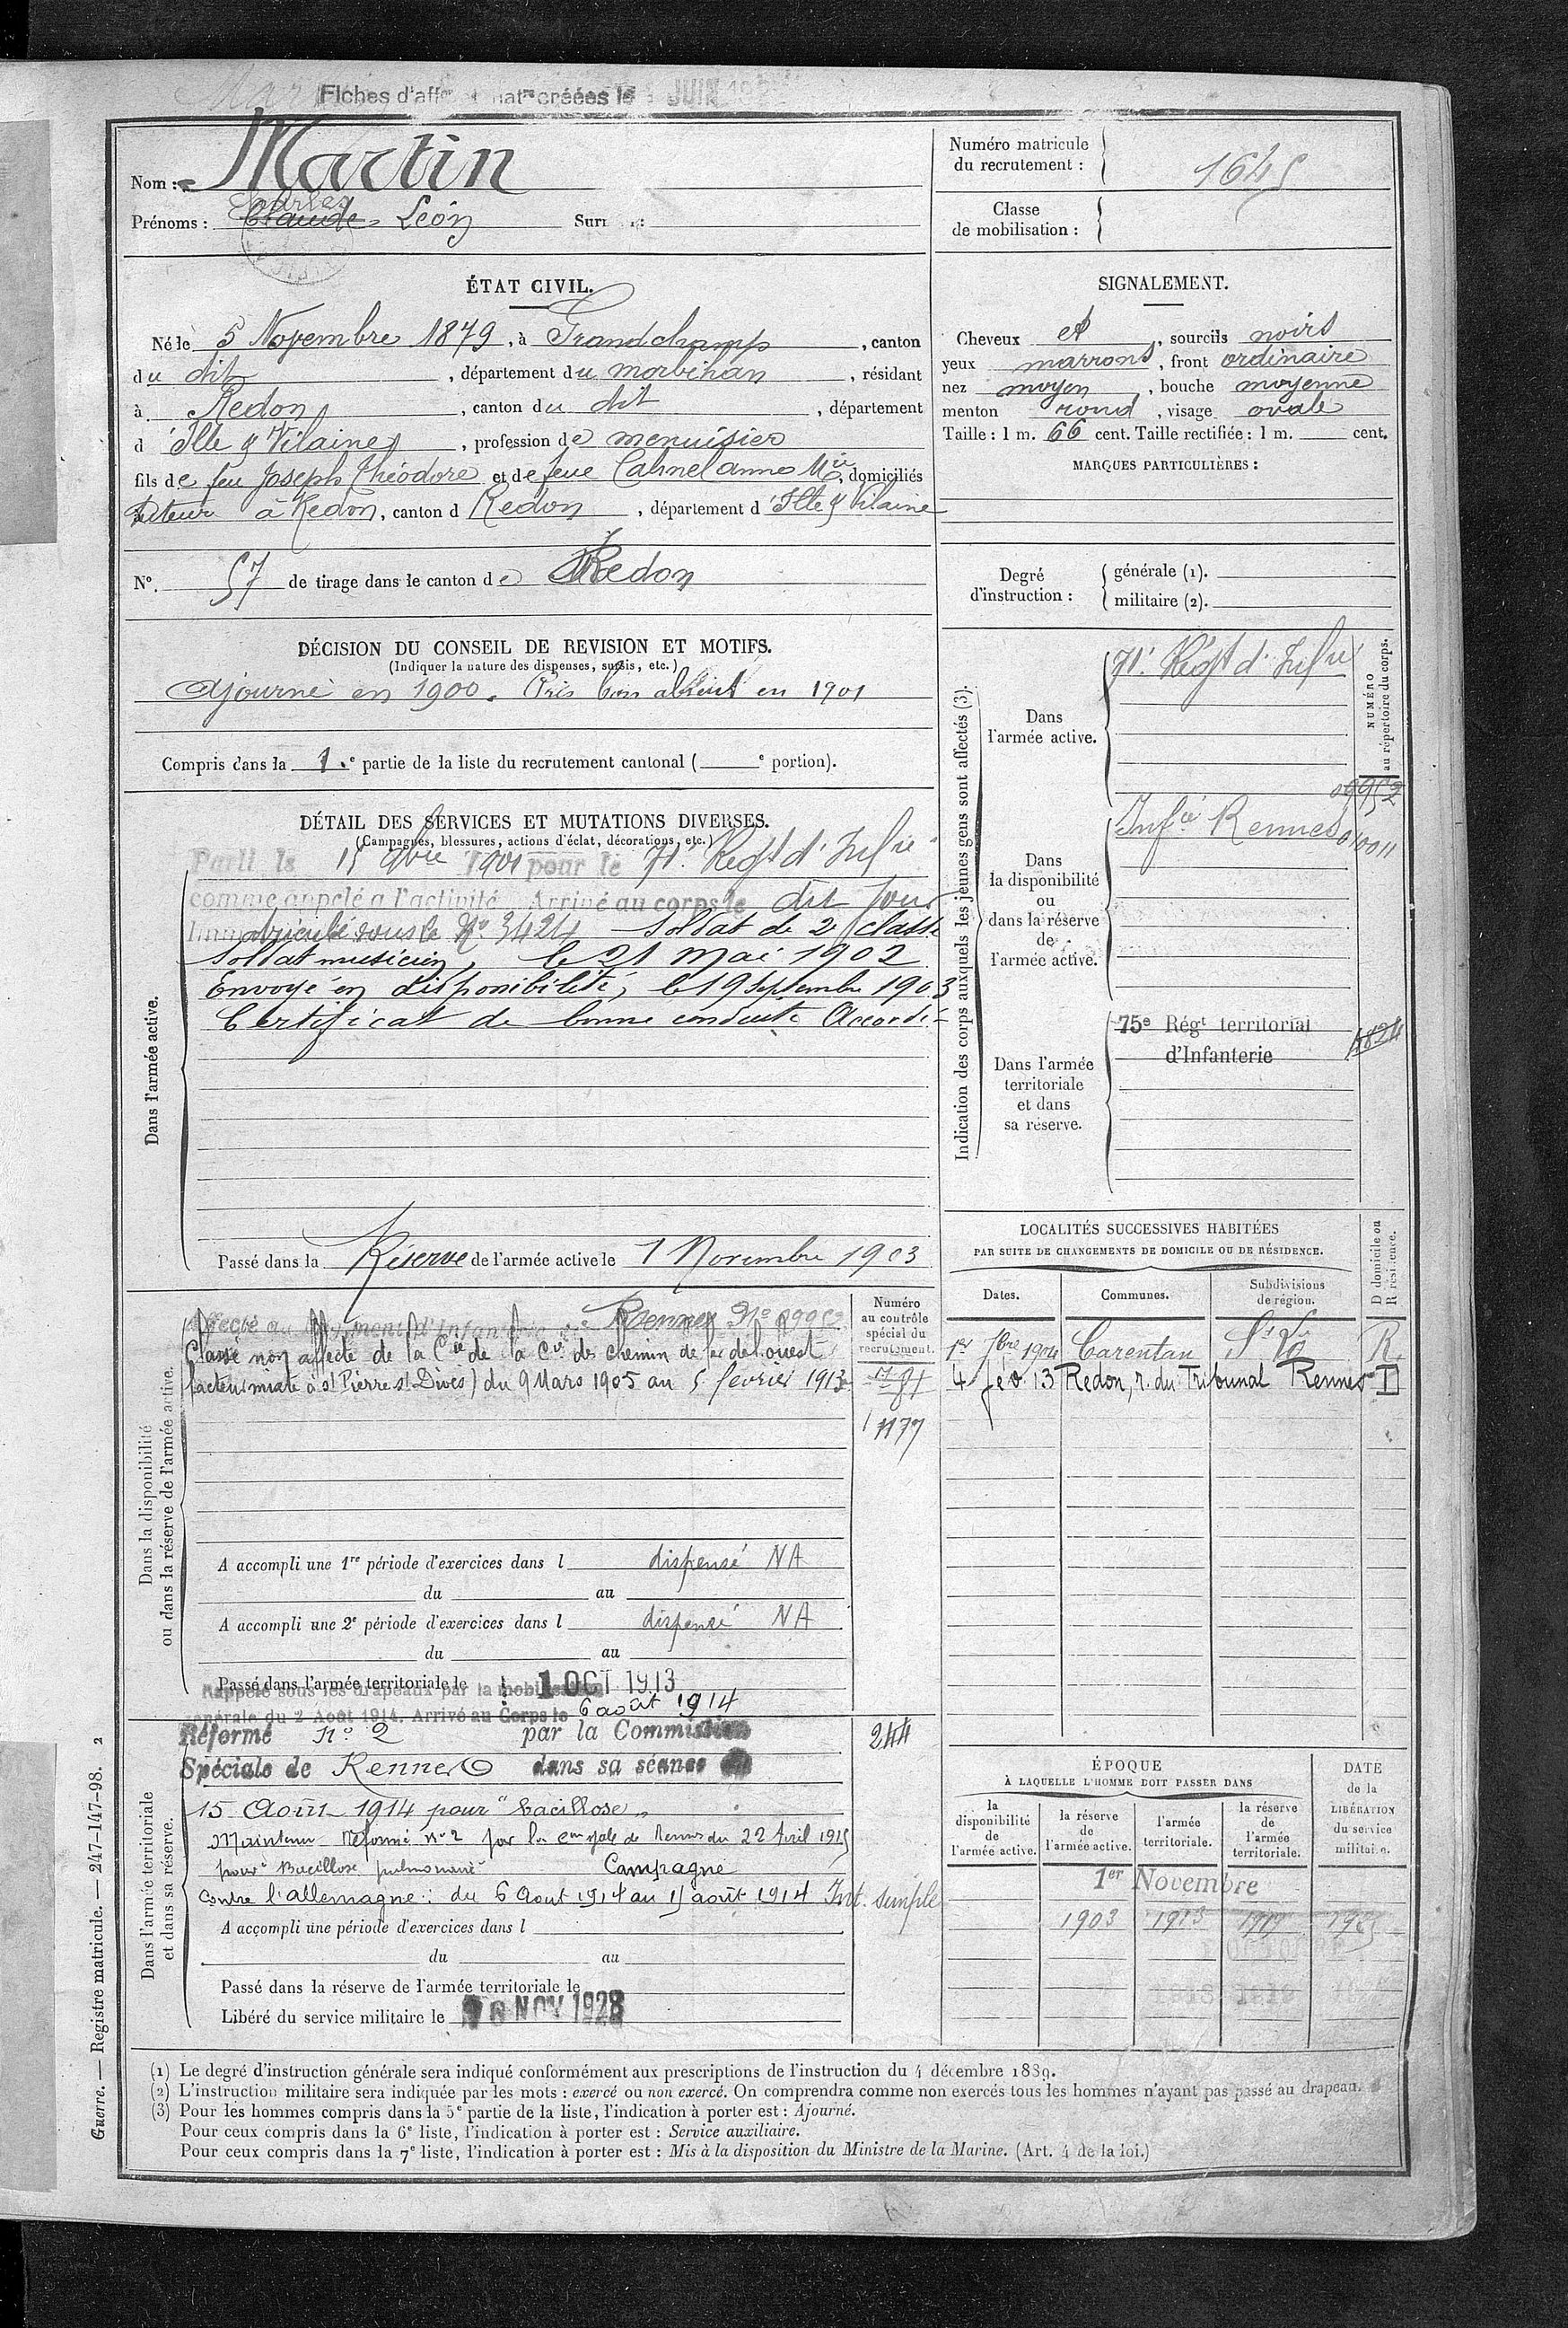 Fiches d'aff créées le JUIN
Nom : Martin
Charles
Prénoms : Claude Léon Surnoms :
Numéro matricule du recrutement : 1645
Classe de mobilisation :
ÉTAT CIVIL.
Né le 5 Novembre 1879, à Grandchamp, canton
du dit, département du morbihan, résidant
à Redon, canton du dit, département
d'Ille & Vilaine, profession de menuisier
fils de feu Joseph Théodore et de feue Cahnel anne Mie, domiciliés
tuteur à Redon, canton d Redon, département d'Ille & Vilaine
N° 57 de tirage dans le canton de Redon
SIGNALEMENT.
Cheveux et, sourcils noirs
yeux marrons, front ordinaire
nez moyen, bouche moyenne
menton rond, visage ovale
Taille : 1 m. 66 cent. Taille rectifiée : 1 m. cent.
MARQUES PARTICULIÈRES :
Degré d'instruction : générale (1).
militaire (2).
DÉCISION DU CONSEIL DE REVISION ET MOTIFS.
(Indiquer la nature des dispenses, sursis, etc.)
Ajourné en 1900. Pris bon absent en 1901
Compris dans la 1.e partie de la liste du recrutement cantonal ( e portion).
DÉTAIL DES SERVICES ET MUTATIONS DIVERSES.
(Campagnes, blessures, actions d'éclat, décorations, etc.)
Dans l'armée active.
Parti le 15 9bre 1901 pour le 71e Regt d'Infie
comme appelé a l'activité. Arrivé au corps le dit jour
Immatriculé sous le No 3424 Soldat de 2e classe
Soldat musicien, le 21 mai 1902
Envoyé en disponibilité, le 19 septembre 1903
Certificat de bonne conduite Accordé
Passé dans la Réserve de l'armée active le 1 Novembre 1903
Indication des corps auxquels les jeunes gens sont affectés (3).
NUMÉRO au répertoire du corps.
Dans l'armée active.
71e Regt d'Infie
Dans la disponibilité ou dans la réserve de l'armée active.
09952
Infie Rennes 010011
Dans l'armée territoriale et dans sa réserve.
75e Régt territorial
d'Infanterie
LOCALITÉS SUCCESSIVES HABITÉES
PAR SUITE DE CHANGEMENTS DE DOMICILE OU DE RÉSIDENCE.
Dates. Communes. Subdivisions de région. D domicile ou R résidence.
1er 7bre 1904 Carentan St Lô R.
4 fév. 13 Redon, r. du Tribunal Rennes D
Dans la disponibilité ou dans la réserve de l'armée active.
Numéro au contrôle spécial du recrutement.
Affecté au Régiment d'Infanterie de Rennes No 09952
Classé non affecté de la Cie des chemin de fer de l'ouest
(facteur mixte à St Pierre St Dives) du 9 Mars 1905 au 5 février 1913
1177
A accompli une 1re période d'exercices dans l dispensé NA
du au
A accompli une 2e période d'exercices dans l dispensé NA
du au
Passé dans l'armée territoriale le 1 OCT 1913
Rappelé sous les drapeaux par la mobilisation
générale du 2 Août 1914. Arrivé au Corps le 6 août 1914
Dans l'armée territoriale et dans sa réserve.
Réformé n° 2 par la Commission
244
Spéciale de Rennes dans sa séance du
15 Août 1914 pour "bacillose"
Maintenu Réformé n° 2 par la Con spale de Rennes du 22 Avril 1915
pour "Bacillose pulmonaire" Campagne
contre l'allemagne : du 6 Aout 1914 au 15 août 1914 Int. simple
A accompli une période d'exercices dans l
du au
Passé dans la réserve de l'armée territoriale le
Libéré du service militaire le 10 NOV 1928
ÉPOQUE
À LAQUELLE L'HOMME DOIT PASSER DANS
la disponibilité de l'armée active. la réserve de l'armée active. l'armée territoriale. la réserve de l'armée territoriale. DATE de la LIBÉRATION du service militaire.
1er Novembre
1903 1913 1919 1925
(1) Le degré d'instruction générale sera indiqué conformément aux prescriptions de l'instruction du 4 décembre 1889.
(2) L'instruction militaire sera indiquée par les mots : exercé ou non exercé. On comprendra comme non exercés tous les hommes n'ayant pas passé au drapeau.
(3) Pour les hommes compris dans la 5e partie de la liste, l'indication à porter est : Ajourné.
Pour ceux compris dans la 6e liste, l'indication à porter est : Service auxiliaire.
Pour ceux compris dans la 7e liste, l'indication à porter est : Mis à la disposition du Ministre de la Marine. (Art. 4 de la loi.)
Guerre. — Registre matricule. — 247-147-98. 2